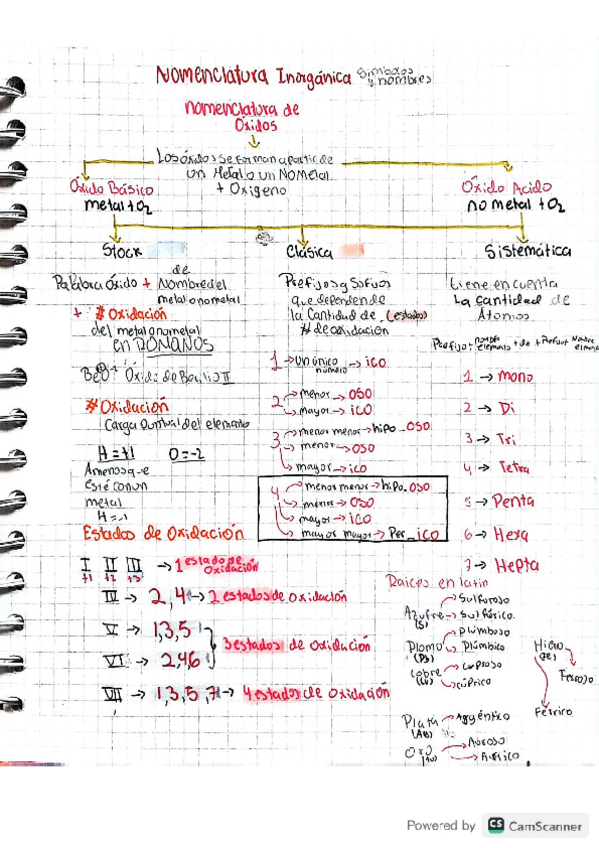 Nomenclatura Inorgánica Símbolos
y nombres
nomenclatura de
Óxidos
Los óxidos se forman a partir de
un Metal o un No Metal
+ Oxigeno
Óxido Básico
metal + O2
Óxido Acido
no metal + O2
Stock
Palabra Óxido + de
Nombre del
metal o no metal
+ # Oxidación
del metal o no metal
en ROMANOS
BeO Óxido de Berilio II
# Oxidación
Carga puntual del elemento
H = +1 O = -2
Amenos que
Esté con un
metal
H = -1
Clásica
Prefijos y Sufijos
que depende de
la Cantidad de (estados)
# de oxidación
1 → un único → ico
número
2 menor → oso
mayor → ico
3 menor menor → hipo_oso
menor → oso
mayor → ico
4 menor menor → hipo_oso
menor → oso
mayor → ico
mayor mayor → Per_ico
Sistemática
tiene en cuenta
La Cantidad de
Atomos
Prefijo + nombre elemento + de + Prefijo + Nombre elemento
1 → mono
2 → Di
3 → Tri
4 → Tetra
5 → Penta
6 → Hexa
7 → Hepta
Estados de Oxidación
I II III → 1 estado de
Oxidación
+1 +2 +3
IV → 2, 4 → 2 estados de oxidación
V → 1,3,5
3 estados de oxidación
VI → 2,4,6
VII → 1,3,5,7 → 4 estados de Oxidación
Raices en latin
Azufre → Sulfuroso
(S) Sulfúrico
Plomo → Plumboso
Plúmbico
Cobre → Cuproso
(Cu) → Cúprico
Plata → Argéntico
Oro → Auroso
(Au) → Aúrico
Hierro
(Fe)
Ferroso
Férrico
Powered by CS CamScanner